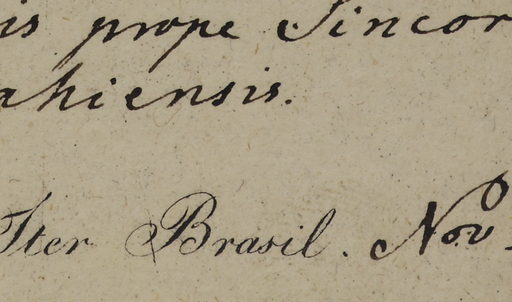 is prope Sincor
ahiensis.
Iter Brasil. Nov.